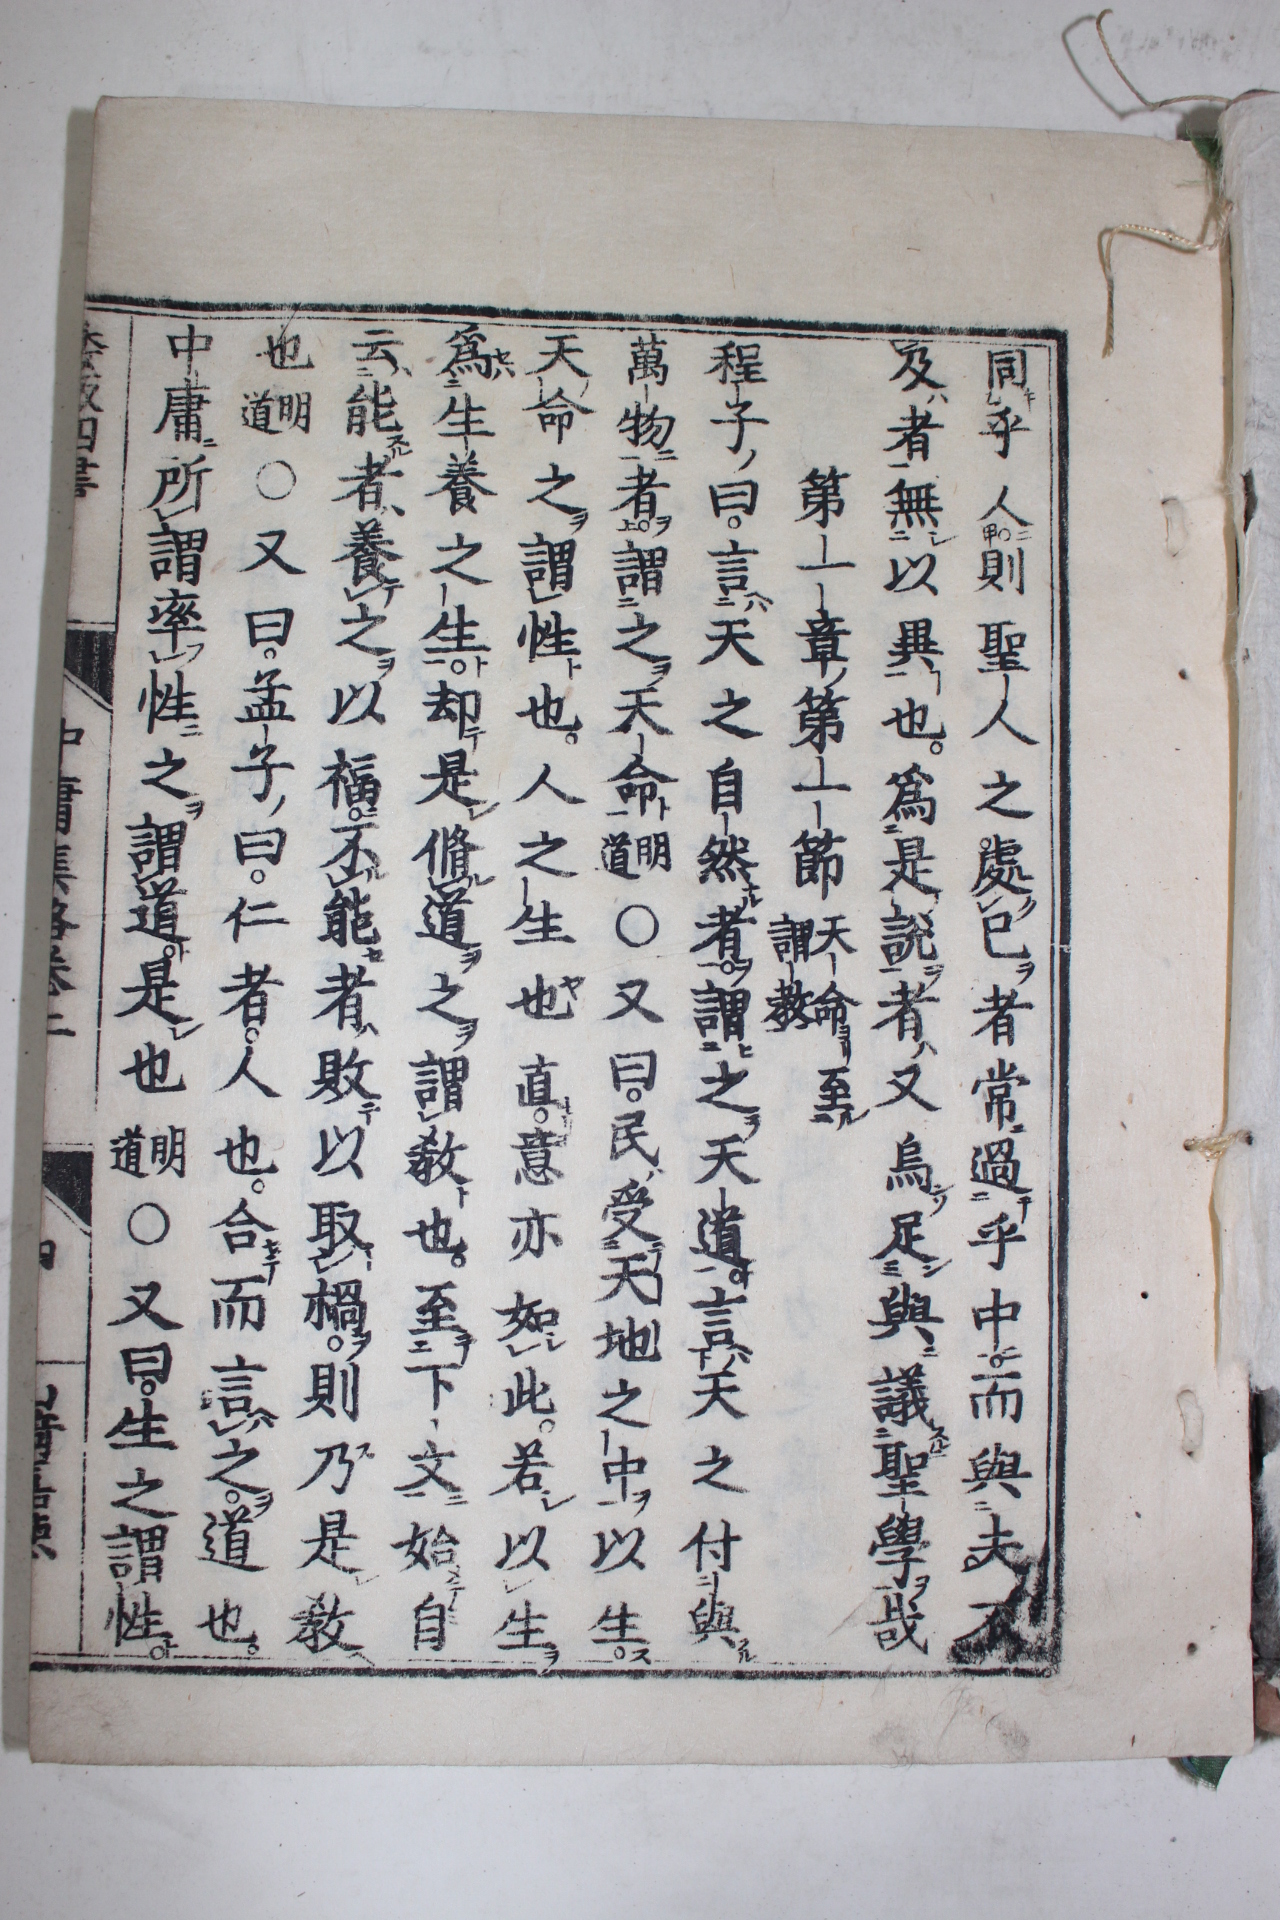 同乎人則聖人之處已者常過乎中而與夫不
及者無以異也。爲是説者又烏足與議聖學哉
第一章第一節 天命至謂教
程子曰。言天之自然者。謂之天道。言天之付與
萬物者謂之天命 明道 ○又曰。民受天地之中以生。
天命之謂性也。人之生也直。意亦如此。若以生
爲生養之生。却是脩道之謂教也。至下文始自
云能者養之以福。不能者敗以取禍。則乃是教
也 明道 ○又曰。孟子曰。仁者。人也。合而言之。道也。
中庸所謂率性之謂道。是也 明道 ○又曰。生之謂性。